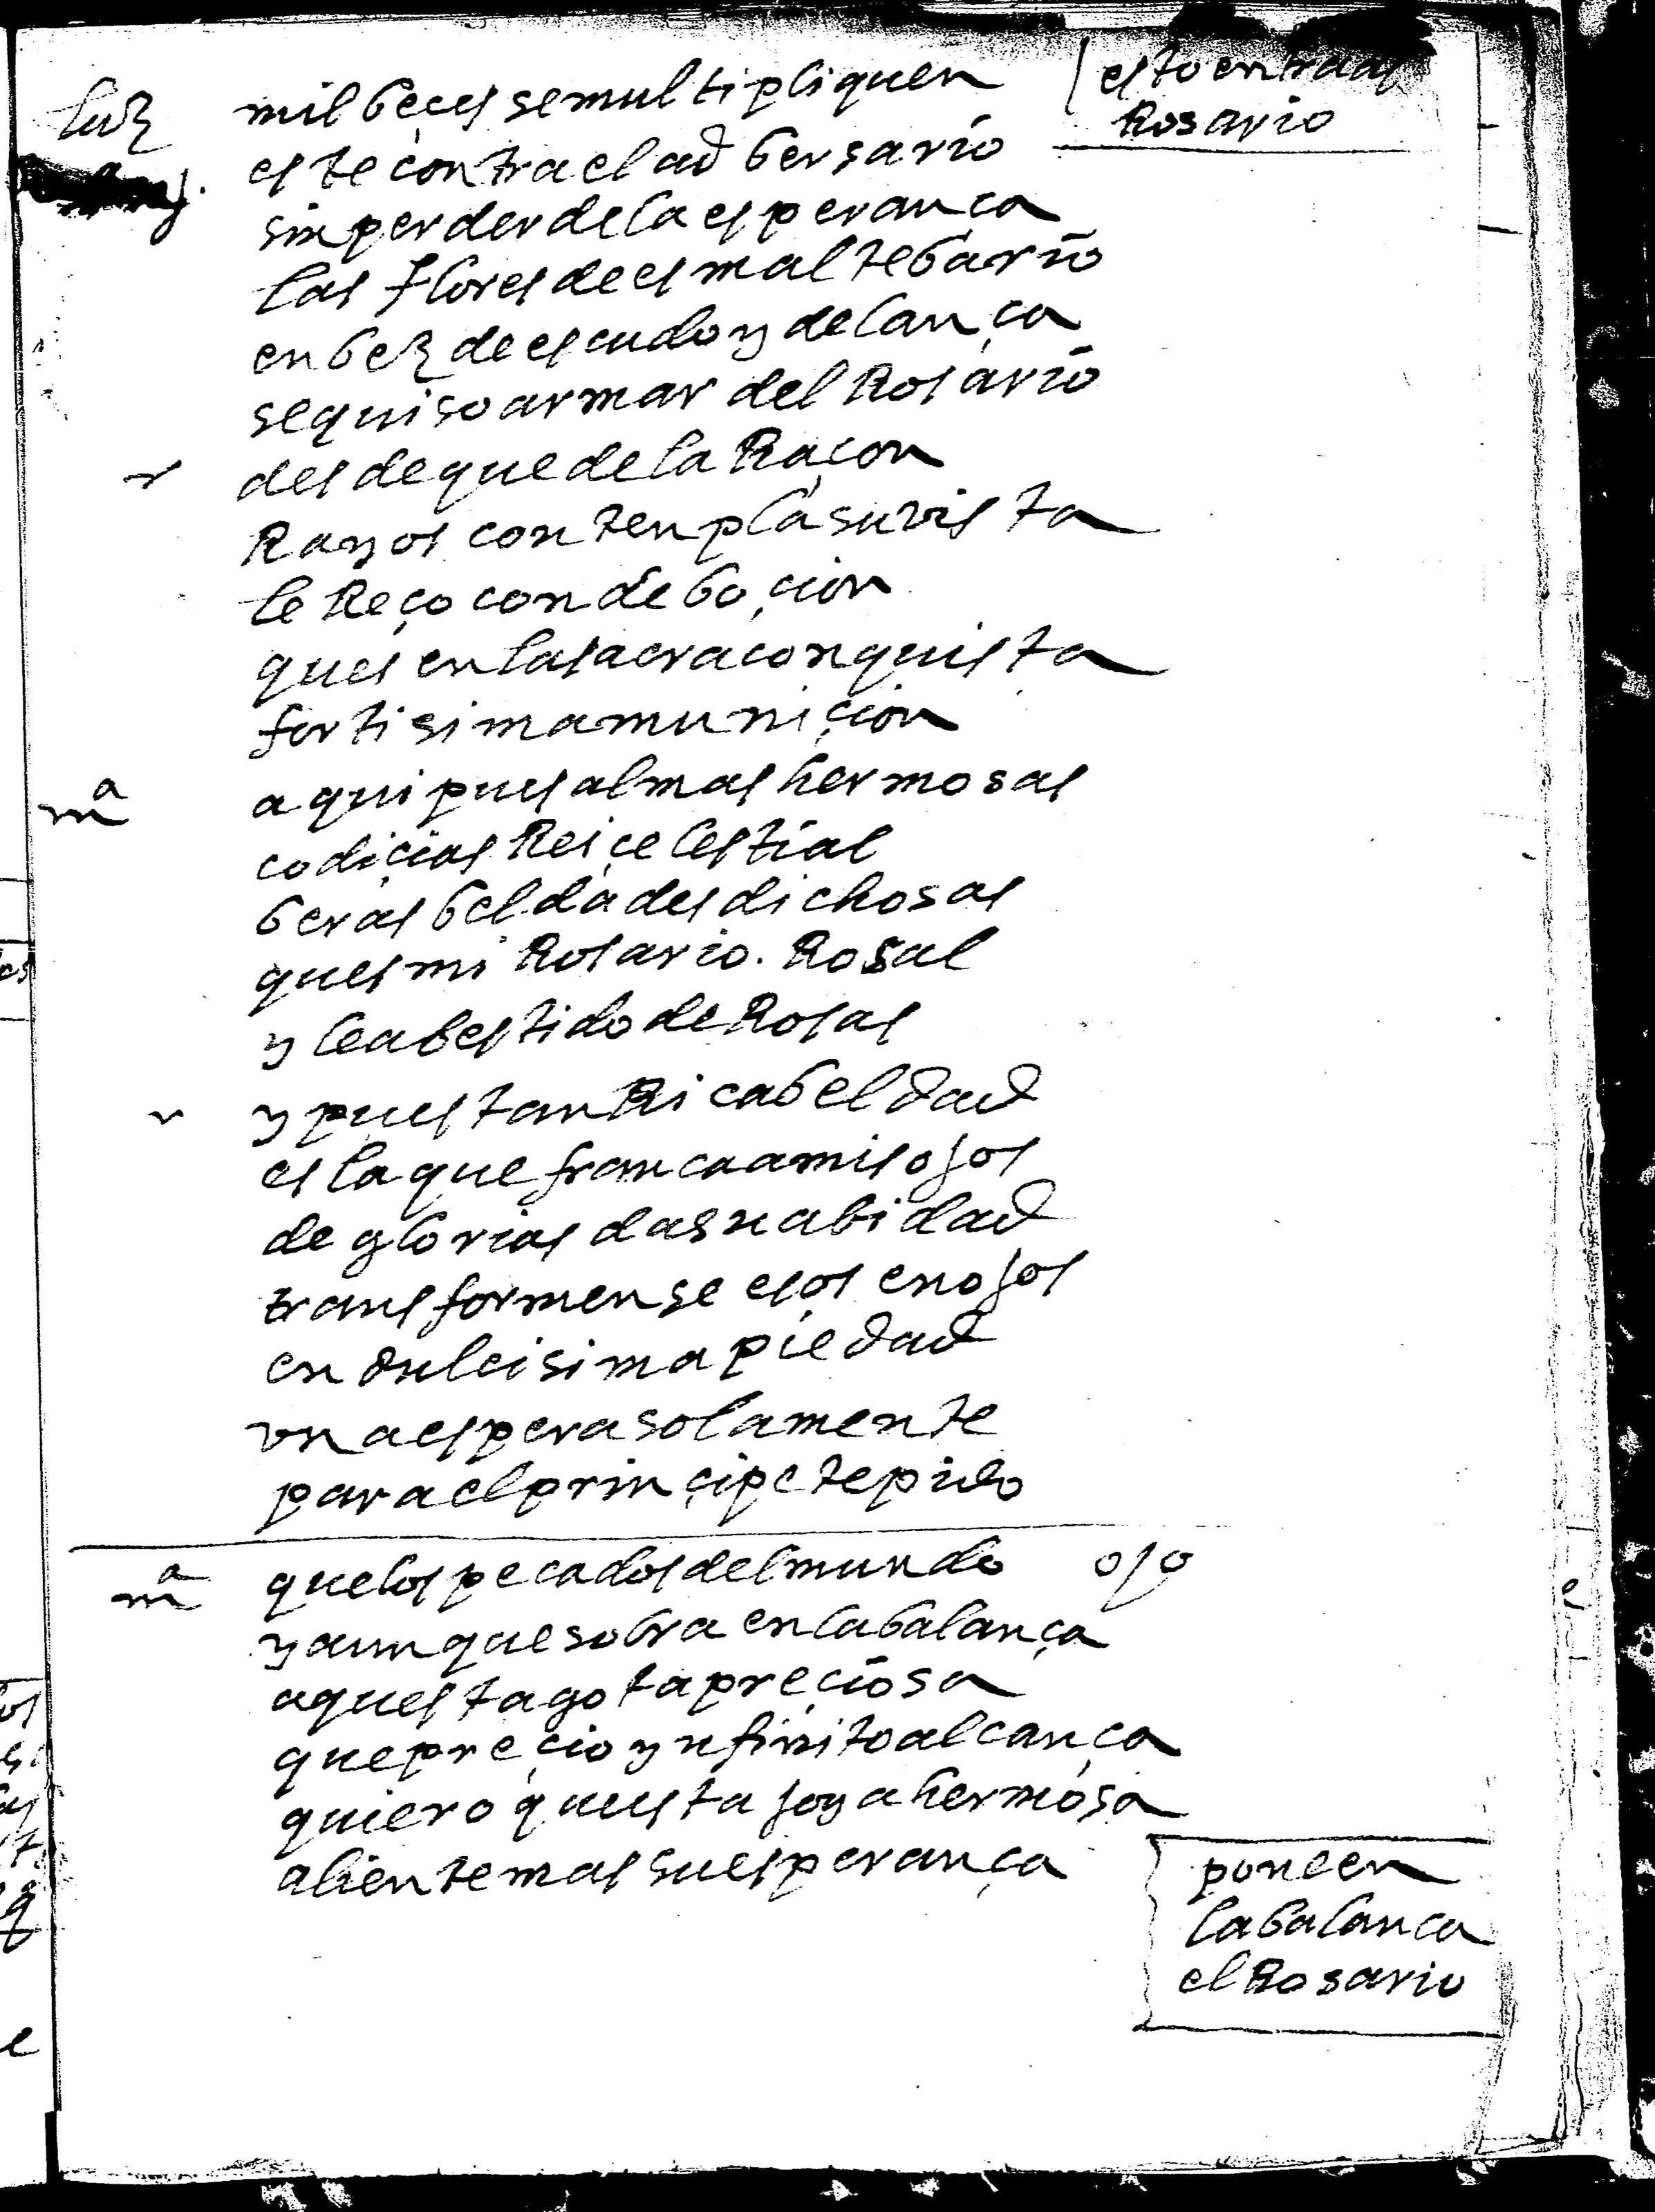 luz mil beçes semultipliquen
esto entradas
Rosario
este contra el adbersario
sin perder de la esperança
las flores de esmalte bario
en bez de escudo y de lança
se quiso armar del Rosario
r desde que de la Raçon
Rayos contenpla su vista
le Reço con deboçion
ques en la sacra conquista
fortisima muniçion
mª aqui pues almas hermosas
codiçias Rei çelestial
beras beldades dichosas
ques mi Rosario. Rosal
y le a bestido de Rosas
r y pues tan Rica beldad
es la que franca a mis ojos
de glorias da suabidad
transformense esos enojos
en dulcisima piedad
vna espera solamente
para el prinçipe te pido
mª que los pecados del mundo ojo
y aunque sobra en la balança
aquesta gota preçiosa
que preçio ynfinito alcança
quiero questa joya hermosa
aliente mas su esperança
pone en
la balanca
el Rosario